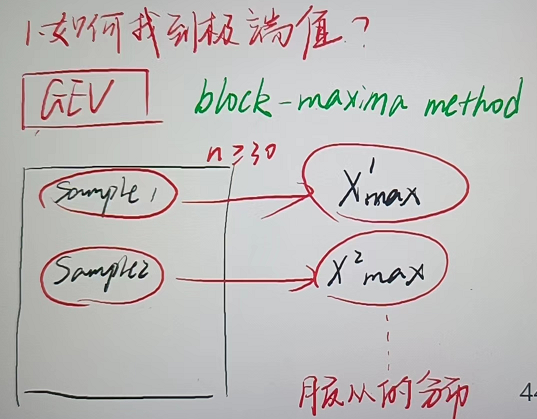 1.如何找到极端值?
GEV block-maxima method
n≥30
Sample1 X¹max
Sample2 X²max
服从的分布
44